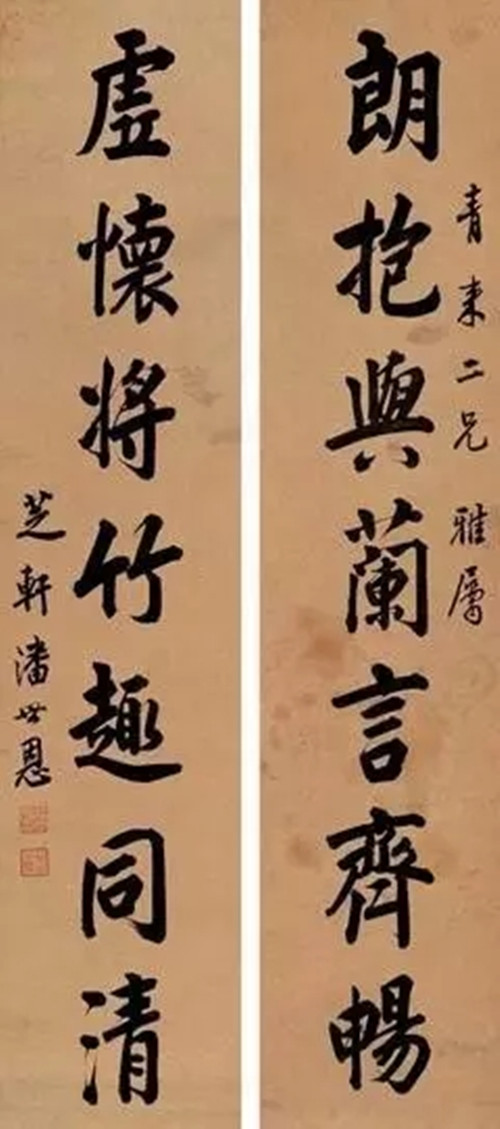 青来二兄雅属
朗抱與蘭言齊暢
虚懷將竹趣同清
芝軒潘世恩